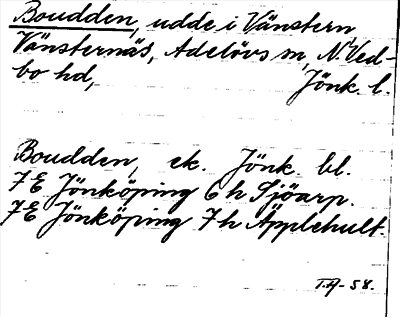 Boudden, udde i Vänstern,
Vänsternäs, Adelövs sn, N. Ved-
bo hd, Jönk. l.
Boudden, ek. Jönk. bl.
7E Jönköping 6h Sjöarp.
7E Jönköping 7h Äpplehult.
T.A-58.